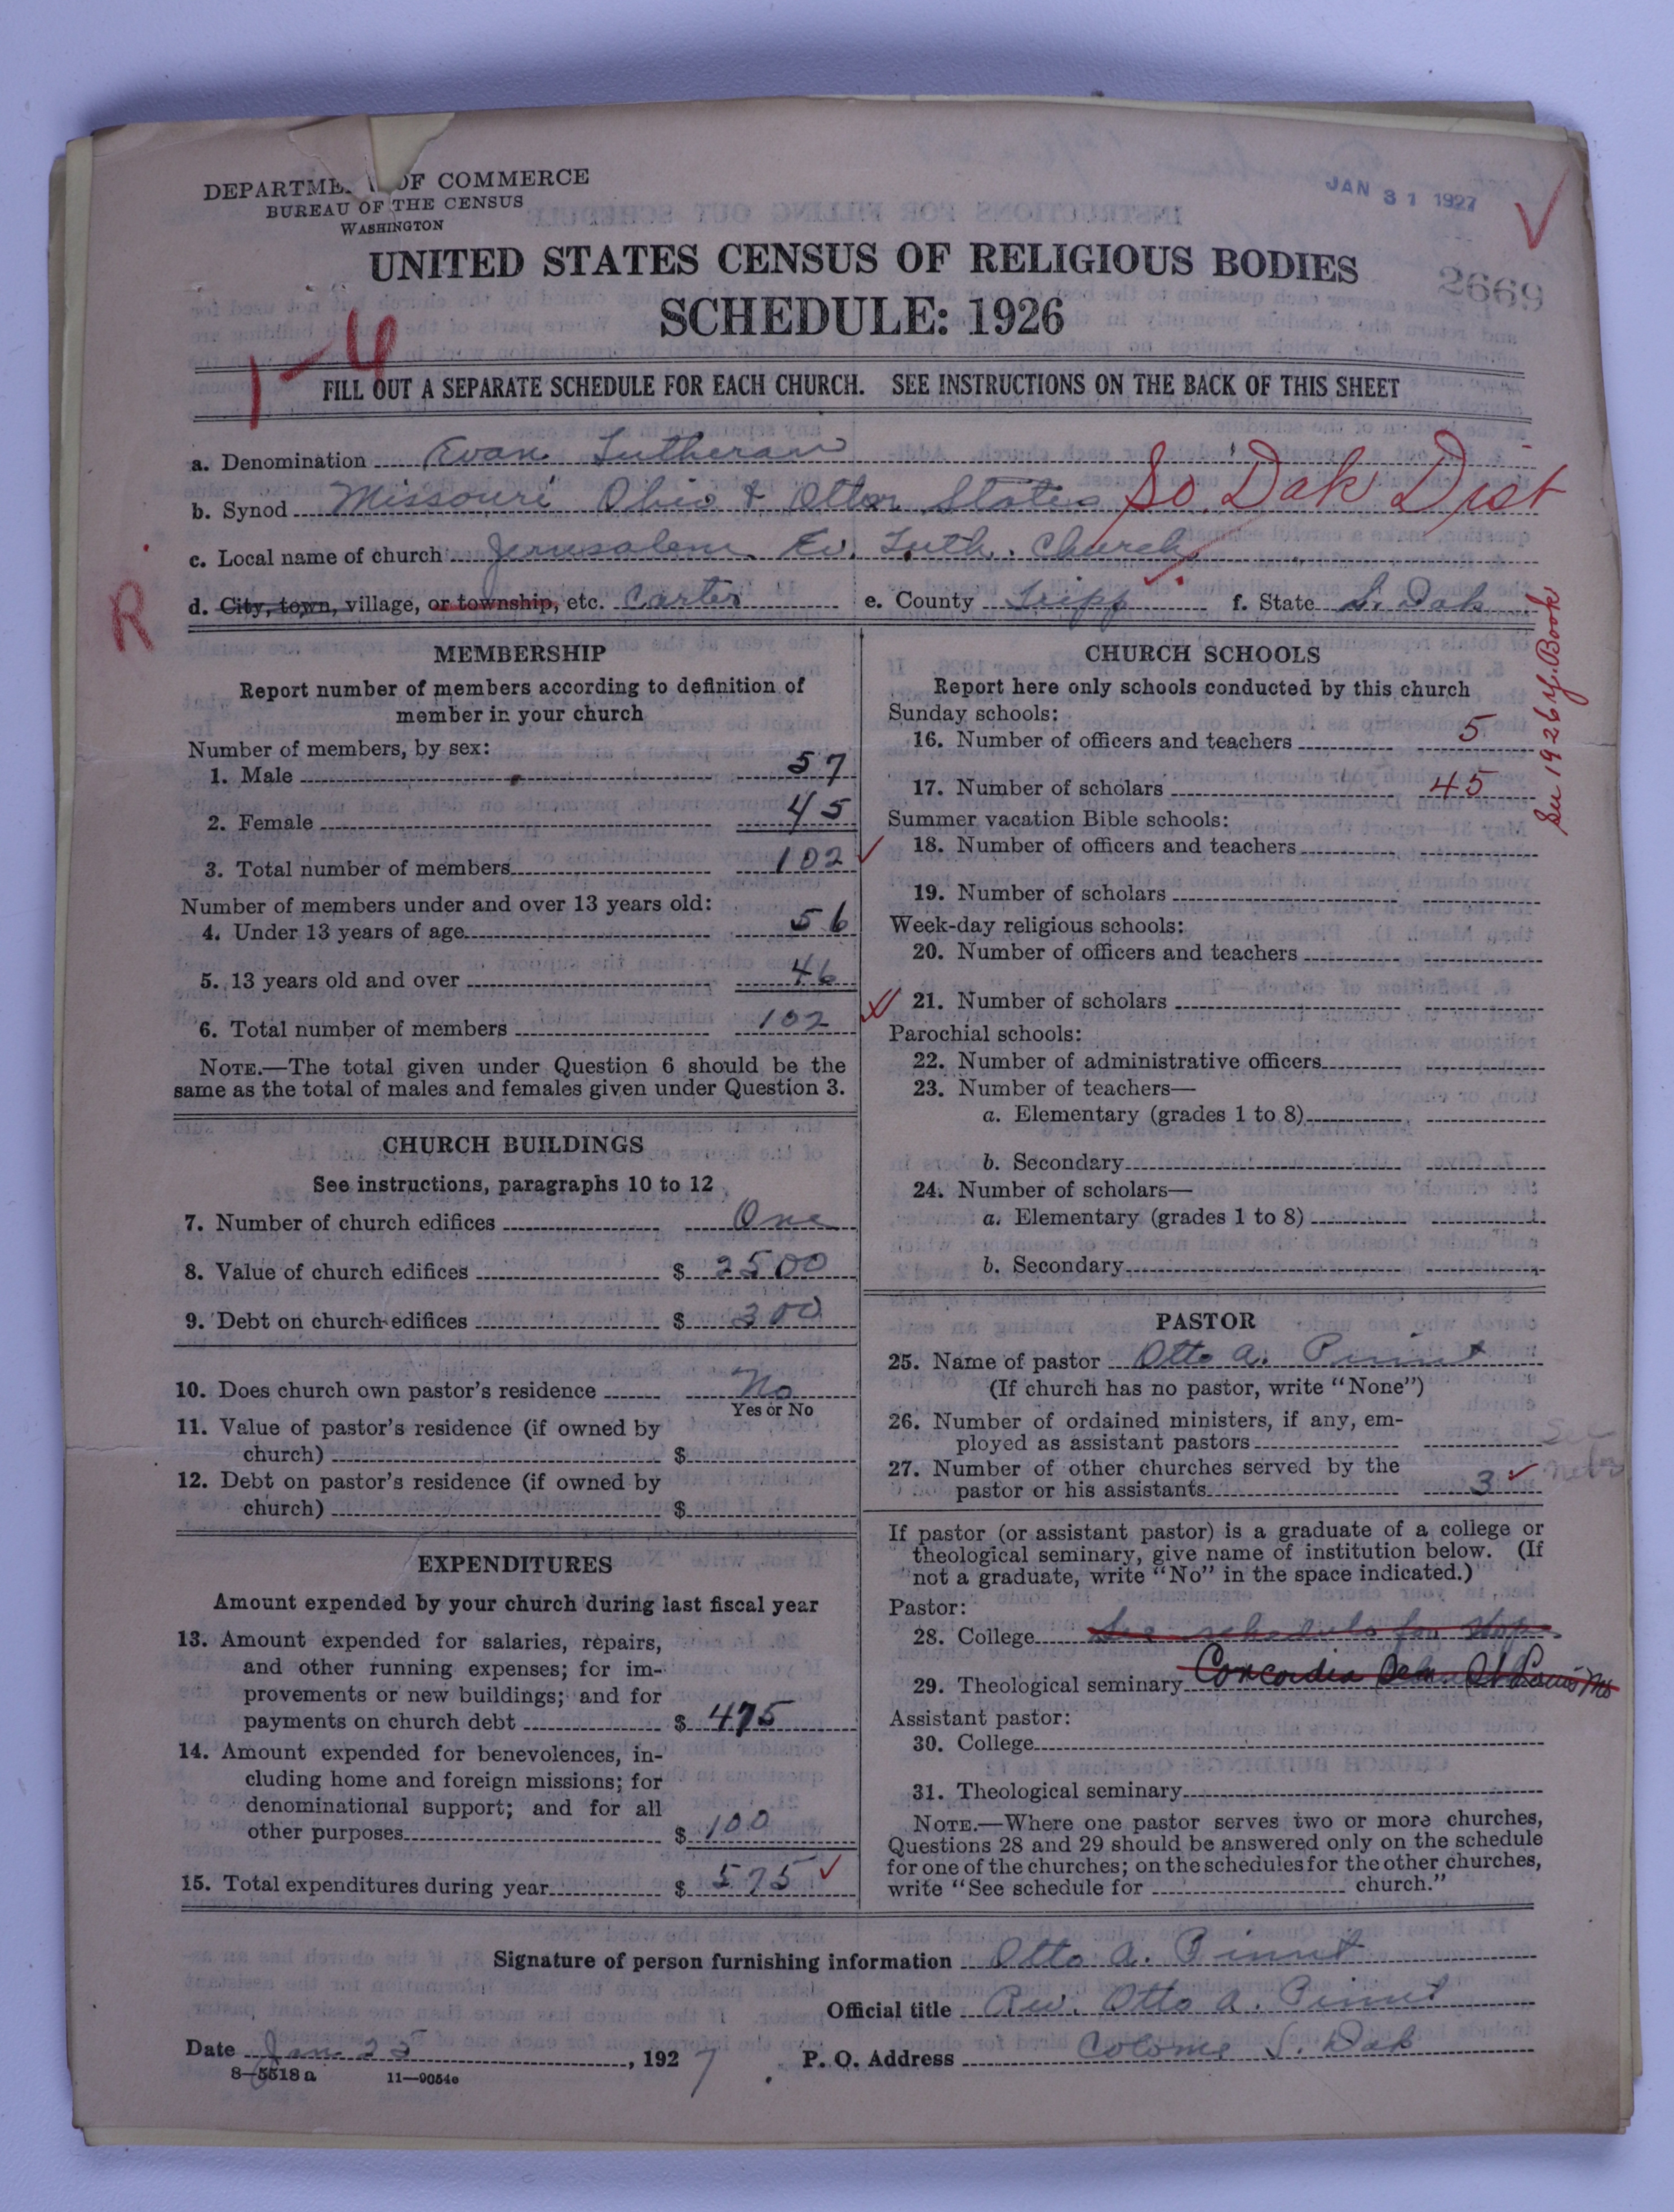 DEPARTME OF COMMERCE
BUREAU OF THE CENSUS
WASHINGTON
JAN 31 1927
UNITED STATES CENSUS OF RELIGIOUS BODIES
SCHEDULE: 1926
2669
1-4
FILL OUT A SEPARATE SCHEDULE FOR EACH CHURCH. SEE INSTRUCTIONS ON THE BACK OF THIS SHEET
a. Denomination Evan. Lutheran
b. Synod Missouri Ohio & Other States So Dak Dist
c. Local name of church Jerusalem Ev. Luth. Church
d. City, town, village, or township, etc. Carter e. County Tripp f. State S. Dak
R
See 1926 Y. Book
MEMBERSHIP
Report number of members according to definition of
member in your church
Number of members, by sex:
1. Male 57
2. Female 45
3. Total number of members 102
Number of members under and over 13 years old:
4. Under 13 years of age 56
5. 13 years old and over 46
6. Total number of members 102
NOTE.—The total given under Question 6 should be the
same as the total of males and females given under Question 3.
CHURCH BUILDINGS
See instructions, paragraphs 10 to 12
7. Number of church edifices One
8. Value of church edifices $ 2500
9. Debt on church edifices $ 300
10. Does church own pastor's residence No
Yes or No
11. Value of pastor's residence (if owned by
church) $
12. Debt on pastor's residence (if owned by
church) $
EXPENDITURES
Amount expended by your church during last fiscal year
13. Amount expended for salaries, repairs,
and other running expenses; for im-
provements or new buildings; and for
payments on church debt $ 475
14. Amount expended for benevolences, in-
cluding home and foreign missions; for
denominational support; and for all
other purposes $ 100
15. Total expenditures during year $ 575
CHURCH SCHOOLS
Report here only schools conducted by this church
Sunday schools:
16. Number of officers and teachers 5
17. Number of scholars 45
Summer vacation Bible schools:
18. Number of officers and teachers
19. Number of scholars
Week-day religious schools:
20. Number of officers and teachers
21. Number of scholars
Parochial schools:
22. Number of administrative officers
23. Number of teachers—
a. Elementary (grades 1 to 8)
b. Secondary
24. Number of scholars—
a. Elementary (grades 1 to 8)
b. Secondary
PASTOR
25. Name of pastor Otto A.
(If church has no pastor, write "None")
26. Number of ordained ministers, if any, em-
ployed as assistant pastors
27. Number of other churches served by the
pastor or his assistants 3
See
If pastor (or assistant pastor) is a graduate of a college or
theological seminary, give name of institution below. (If
not a graduate, write "No" in the space indicated.)
Pastor:
28. College See schedule for
29. Theological seminary Concordia Sem. St Louis Mo
Assistant pastor:
30. College
31. Theological seminary
NOTE.—Where one pastor serves two or more churches,
Questions 28 and 29 should be answered only on the schedule
for one of the churches; on the schedules for the other churches,
write "See schedule for church."
Signature of person furnishing information Otto A.
Official title Rev. Otto A.
Date Jan. 25, 1927 P. O. Address Colome S. Dak
8—5518 a 11—9054e